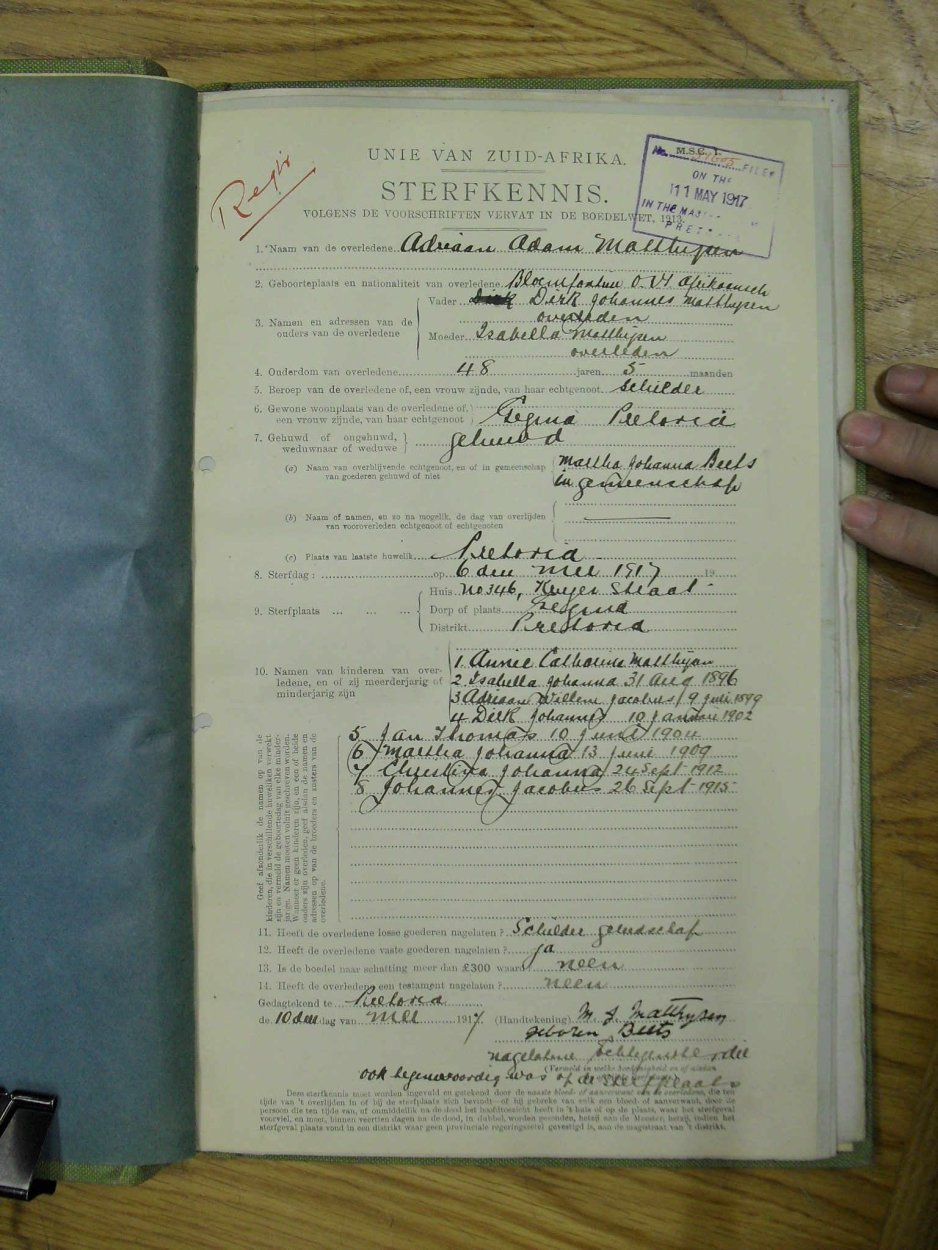 Regis
UNIE VAN ZUID-AFRIKA.
M.S.C. 1.
No. FILED
ON THE
11 MAY 1917
IN THE MAS
PRET
STERFKENNIS.
VOLGENS DE VOORSCHRIFTEN VERVAT IN DE BOEDELWET, 1913.
1. Naam van de overledene Adriaan Adam Matthysen
2. Geboorteplaats en nationaliteit van overledene Bloemfontein O.V.S Afrikaansch
3. Namen en adressen van de ouders van de overledene
Vader Dirk Johannes Matthysen
overleden
Moeder Isabella Matthysen
overleden
4. Ouderdom van overledene 48 jaren 5 maanden
5. Beroep van de overledene of, een vrouw zijnde, van haar echtgenoot Schilder
6. Gewone woonplaats van de overledene of, een vrouw zijnde, van haar echtgenoot Gezina Pretoria
7. Gehuwd of ongehuwd, weduwnaar of weduwe gehuwd
(a) Naam van overblijvende echtgenoot, en of in gemeenschap van goederen gehuwd of niet
Martha Johanna Beets
in gemeenschap
(b) Naam of namen, en zo na mogelik, de dag van overlijden van vooroverleden echtgenoot of echtgenoten
(c) Plaats van laatste huwelik Pretoria
8. Sterfdag: op 6 den Mei 1917 19
9. Sterfplaats
Huis No 346, Straat
Dorp of plaats Gezina
Distrikt Pretoria
10. Namen van kinderen van overledene, en of zij meerderjarig of minderjarig zijn
1. Annie Catharina Matthysen
2 Isabella Johanna 31 Aug 1896
3 Adriaan Willem Jacobus 9 Juli 1899
4 Dirk Johannes 10 Januari 1902
5 Jan Thomas 10 Juni 1904
6 Martha Johanna 13 Junie 1909
7 Christina Johanna 24 Sept 1912
8 Johannes Jacobus 26 Sept 1915
Geef afzonderlik de namen op van de kinderen, die in verschillende huweliken verwekt zijn en vermeld de geboortedag van elke minderjarige. Namen moeten voluit geschreven worden. Wanneer er geen kinderen zijn, en een of beide ouders zijn overleden, geef alsdan de namen en adressen op van de broeders en zusters van de overledene.
11. Heeft de overledene losse goederen nagelaten? Schilder gereedschap
12. Heeft de overledene vaste goederen nagelaten? ja
13. Is de boedel naar schatting meer dan £300 waard neen
14. Heeft de overledene een testament nagelaten? neen
Gedagtekend te Pretoria
de 10 den dag van Mei 1917 (Handtekening) M J Matthysen
geboren Beets
nagelatene
(Vermeld in welke hoedanigheid en of alstan
ook tegenwoordig was op de sterfplaats
Deze sterfkennis moet worden ingevuld en getekend door de naaste bloed- of aanverwant van de overledene, die ten
tijde van 't overlijden in of bij de sterfplaats zich bevindt—of bij gebreke van zulk een bloed- of aanverwant, door de
persoon die ten tijde van, of onmiddellik na de dood het hoofdtoezicht heeft in 't huis of op de plaats, waar het sterfgeval
voorviel, en moet, binnen veertien dagen na de dood, in dubbel, worden gezonden, hetzij aan de Meester, hetzij, indien het
sterfgeval plaats vond in een distrikt waar geen provinciale regeringszetel gevestigd is, aan de magistraat van 't distrikt.